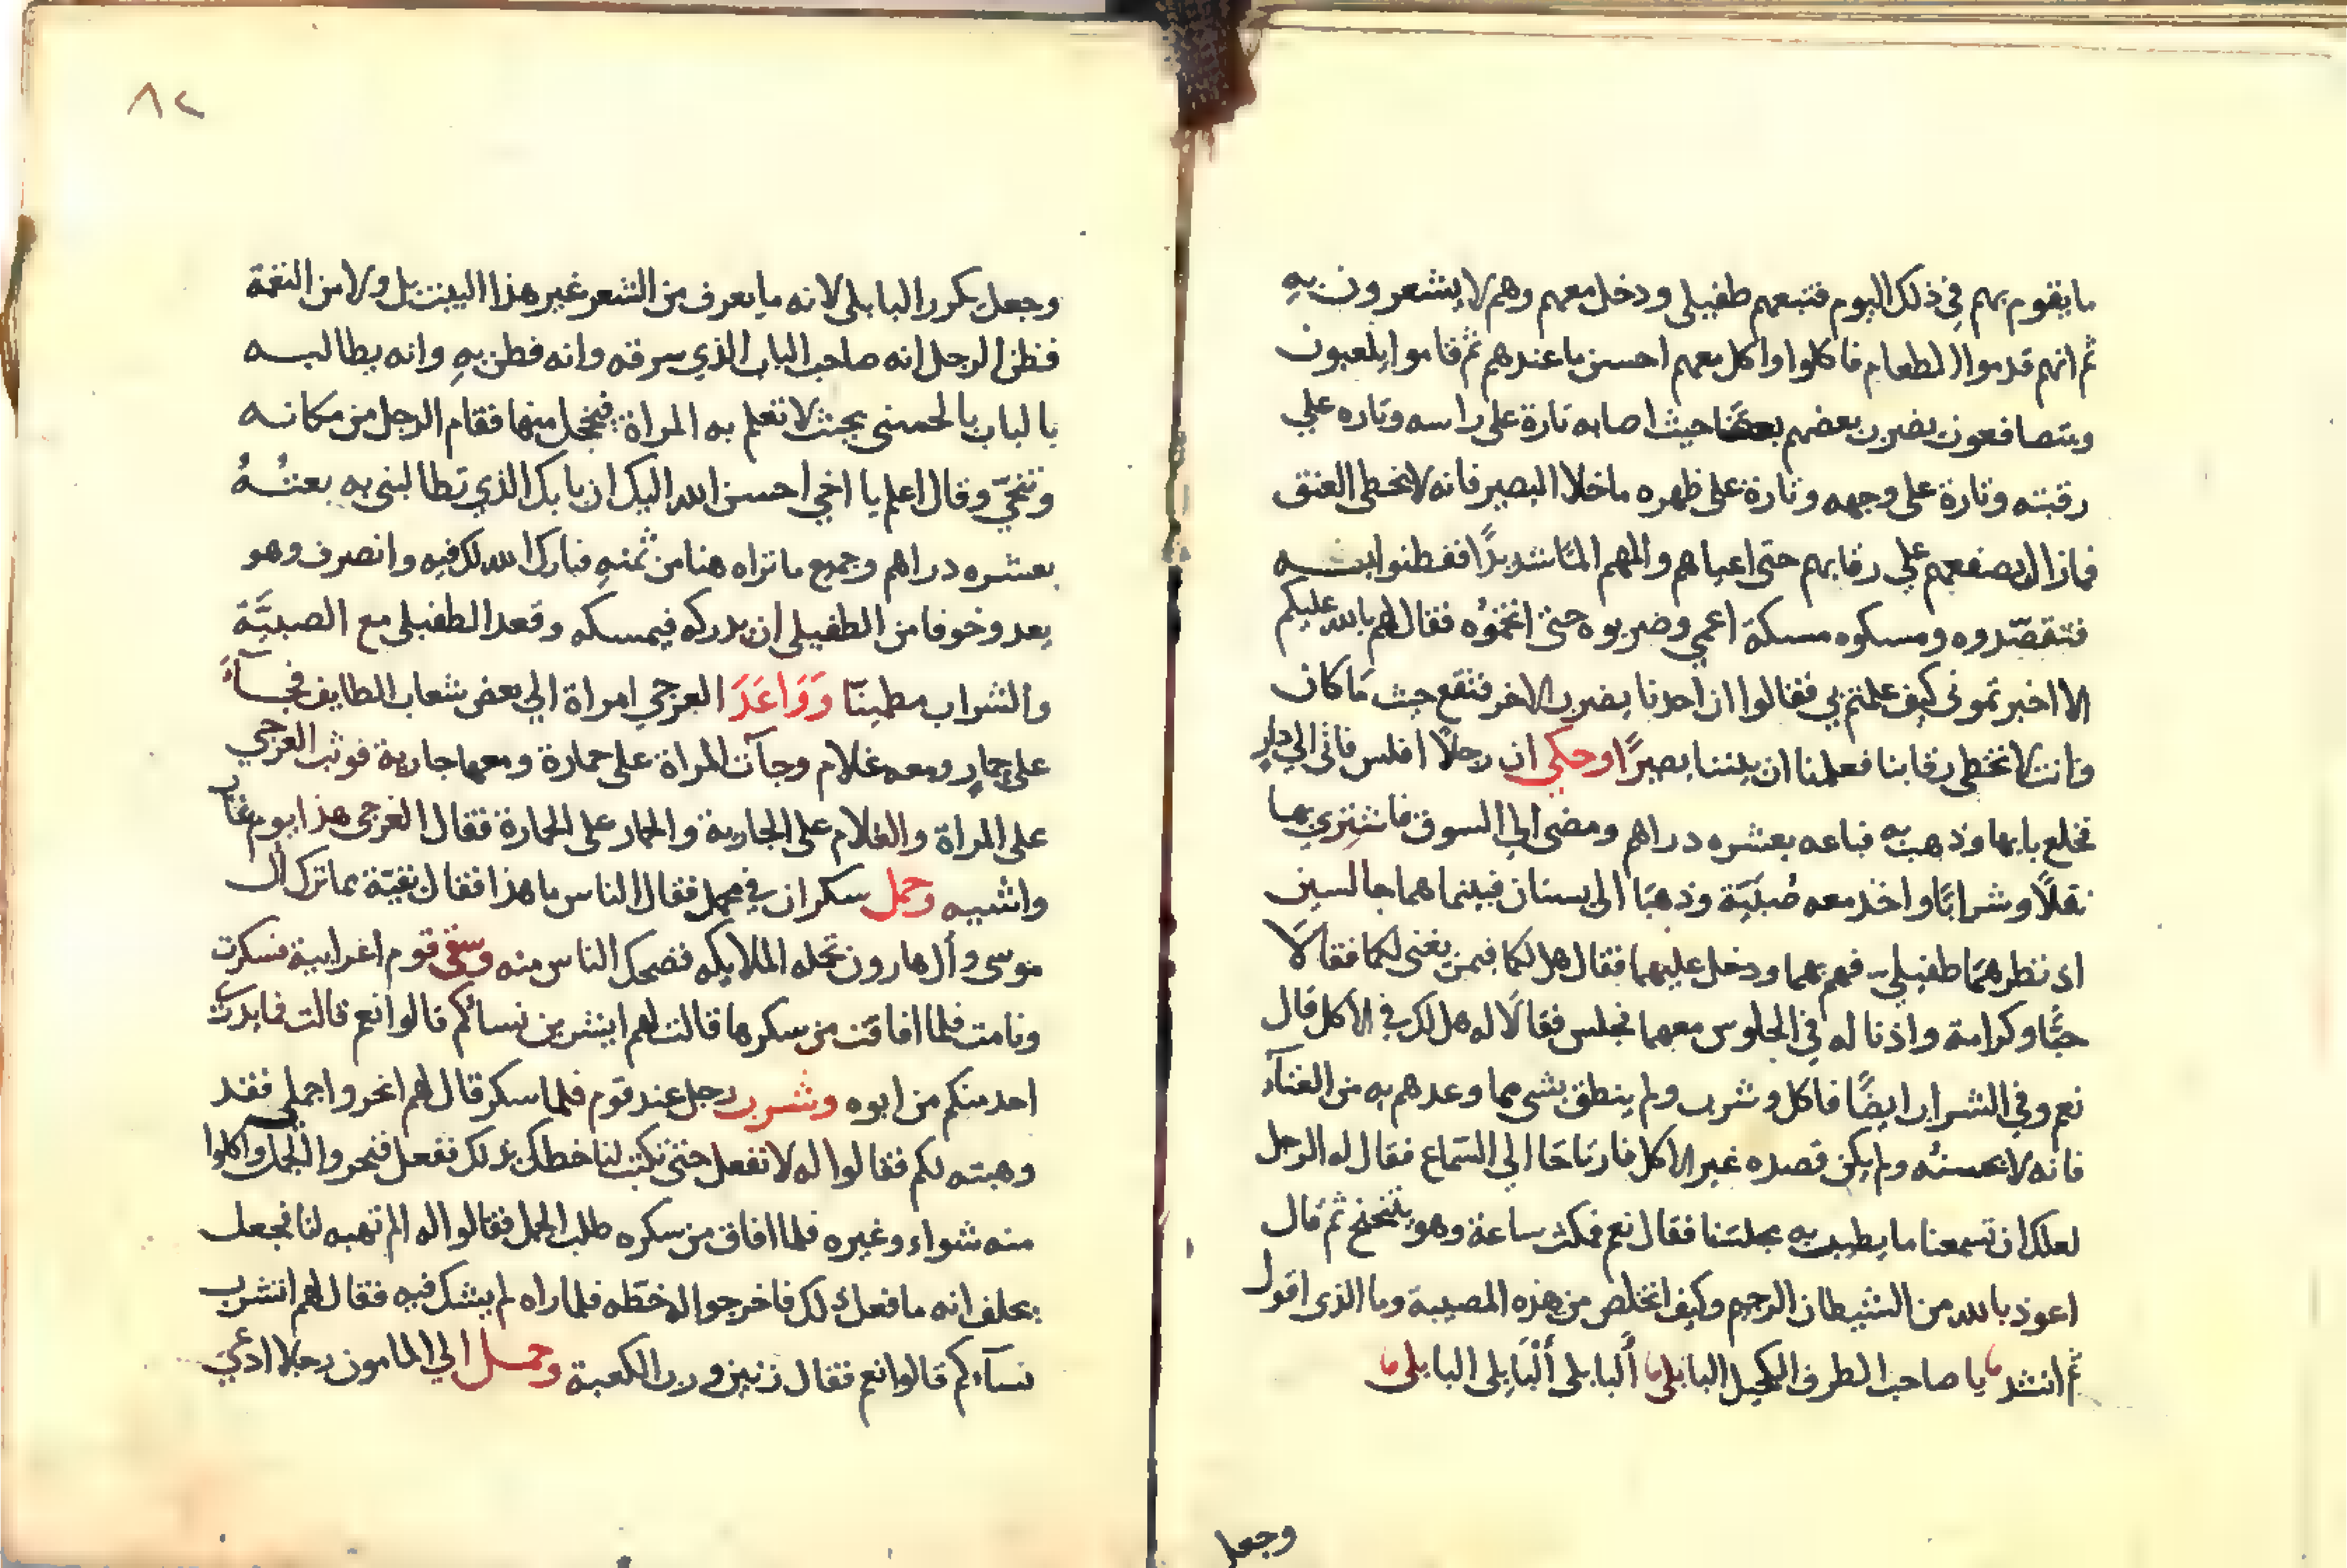 ما يقوم بهم في ذلك اليوم فتبعهم طفيلى ودخل معهم وهم لا يشعرون بهِ
ثم انهم قدموا الطعام فاكلوا واكل معهم احسن ما عندهم ثم قاموا يلعبون
ويتصافعون يضرب بعضهم بعضا حيث اصابه تارة على راسه وتاره علي
رقبته وتارة على وجهه وتارة على ظهره ما خلا البصير فانه لا يخطى العنق
فما زال يصفعهم علي رقابهم حتى اعياهم والمهم المًا شديدًا ففطنوا به
فتقصّدوه ومسكوه مسكة اعمي وضربوه حتى اثخنوُه فقال لهم بالله عليكم
الا اخبرتموني كيف علمتم بي فقالوا ان احدنا يضرب الاخر فتقع حيث مَا كان
وانت لا تخطى رقابنا فعلمنا ان بيننا بصيرًا وحكي ان رجلاً افلس فاتى الي دارٍ
فخلع بابها وذهب به فباعه بعشره دراهم ومضى الي السوق فاشترى بها
نقلاً وشرابًا واخذ معه صُبيَّة وذهبَا الى بستان فبينما هما جالسين
اذ نظرهمَا طفيلي ففهم بهما ودخل عليهما فقال هل لكما فيمن يغنى لكما فقالَا
حبًّا وكرامة واذنا له في الجلوس معهما فجلس فقالَا له هل لك في الاكل قال
نعم وفي الشراب ايضًا فاكل وشرب ولم ينطق بشى مما وعدهم به من الغنآء
فانه لا يحسنُه ولم يكن قصده غير الاكل فارتاحَا الي السّماع فقال له الرجل
لعلك ان تسمعنا ما يطيب به مجلسَنا فقال نعم فمكث ساعة وهو يتنحنح ثم قال
اعوذ بالله من الشيطان الرجيم وكيف اتخلص من هذه المصيبة وما الذى اقول
ثم انشد يا صاحب الطرف الكحيل البابلى البابلى اَلْبَابلى البابلى
وجعل
٨٢
وجعل يكرر البابلى لانه ما يعرف من الشعر غير هذا البيت بل ولا من النغمة
فظن الرجل انه صاحب الباب الذي سرقه وانه فطن بهِ وانه يطالبه
بالباب بالحسنى بحيث لا تعلم به المراة فيخجل منها فقام الرجل من مكانه
وتنحيّ وقال اعلم يا اخي احسن الله اليك ان بابك الذي تطالبنى به بعتُهُ
بعشره دراهم وجميع ما تراه هنا من ثمنهِ فبارك الله لك فيه وانصرف وهو
يعدو خوفا من الطفيلى ان يدركه فيمسكه وقعد الطفيلى مع الصبيَّة
والشراب مطمينّا وَوَاعَدَ العرجي امراة الي بعض شعاب الطايف فجـآءَ
على حمارٍ ومعه غلام وجآت المراة على حمارة ومعها جارية فوثب العرجي
على المراة والغلام على الجارية والحمار على الحمارة فقال العرجى هذا يوم غاب
واشيه وحمل سكران في محمل فقال الناس ما هذا فقال بقيّة مما ترك آل
موسى وأل هارون تحمله الملايكه فضحك الناس منه وسقى قوم اعرابية فسكرت
ونامت فلما افاقت من سكرها قالت لهم ايشربن نسائكم قالوا نعم قالت فما يدرى
احد منكم من ابوه وشرب رجل عند قوم فلما سكر قال لهم انحروا جملى فقد
وهبته لكم فقالوا له لا تفعل حتى تكتب لنا خطك بذلك ففعل فنحروا الجمل واكلوا
منه شواء وغيره فلما افاق من سكره طلب الجمل فقالوا له الم تهبه لنا فجعل
يحلف انه ما فعل ذلك فاخرجوا له خطّه فلما راه لم يشك فيه فقال لهم اتشرب
نسآءكم قالوا نعم فقال زنين ورب الكعبة وحمـل الي المامون رجلا ادعي